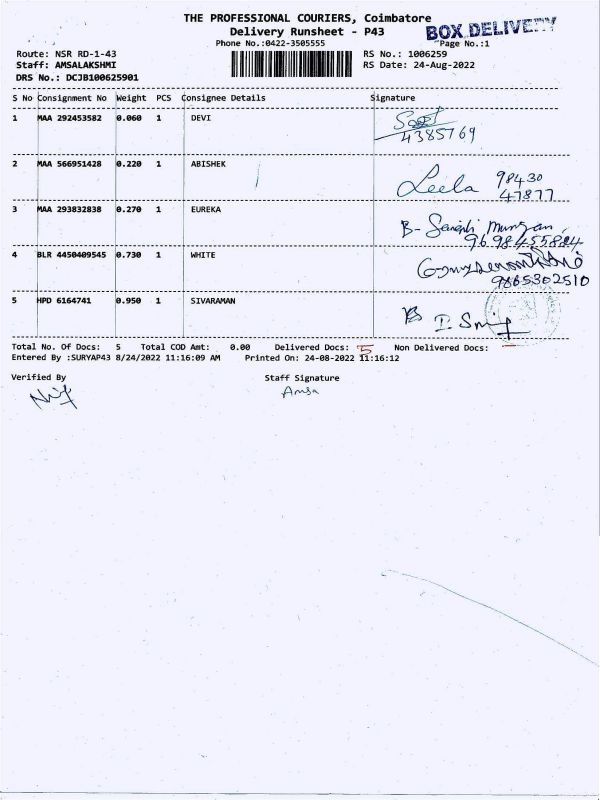 THE PROFESSIONAL COURIERS, Coimbatore
BOX DELIVERY
Delivery Runsheet - P43
Phone No.:0422-3505555
Page No.:1
Route: NSR RD-1-43
RS No.: 1006259
Staff: AMSALAKSHMI
RS Date: 24-Aug-2022
DRS No.: DCJB100625901
S No Consignment No Weight PCS Consignee Details Signature
1 MAA 292453582 0.060 1 DEVI
4385769
2 MAA 566951428 0.220 1 ABISHEK
Leela 98430
47877
3 MAA 293832838 0.270 1 EUREKA
B-
9698455884
4 BLR 4450409545 0.730 1 WHITE
9865302510
5 HPD 6164741 0.950 1 SIVARAMAN
Total No. Of Docs: 5 Total COD Amt: 0.00 Delivered Docs: 5 Non Delivered Docs: —
Entered By :SURYAP43 8/24/2022 11:16:09 AM Printed On: 24-08-2022 11:16:12
Verified By Staff Signature
Amsa